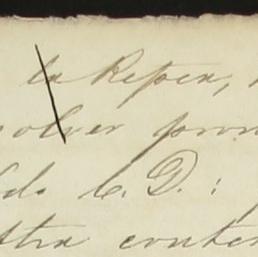 la Repca,
solver pron
do C. D. :
stra conten